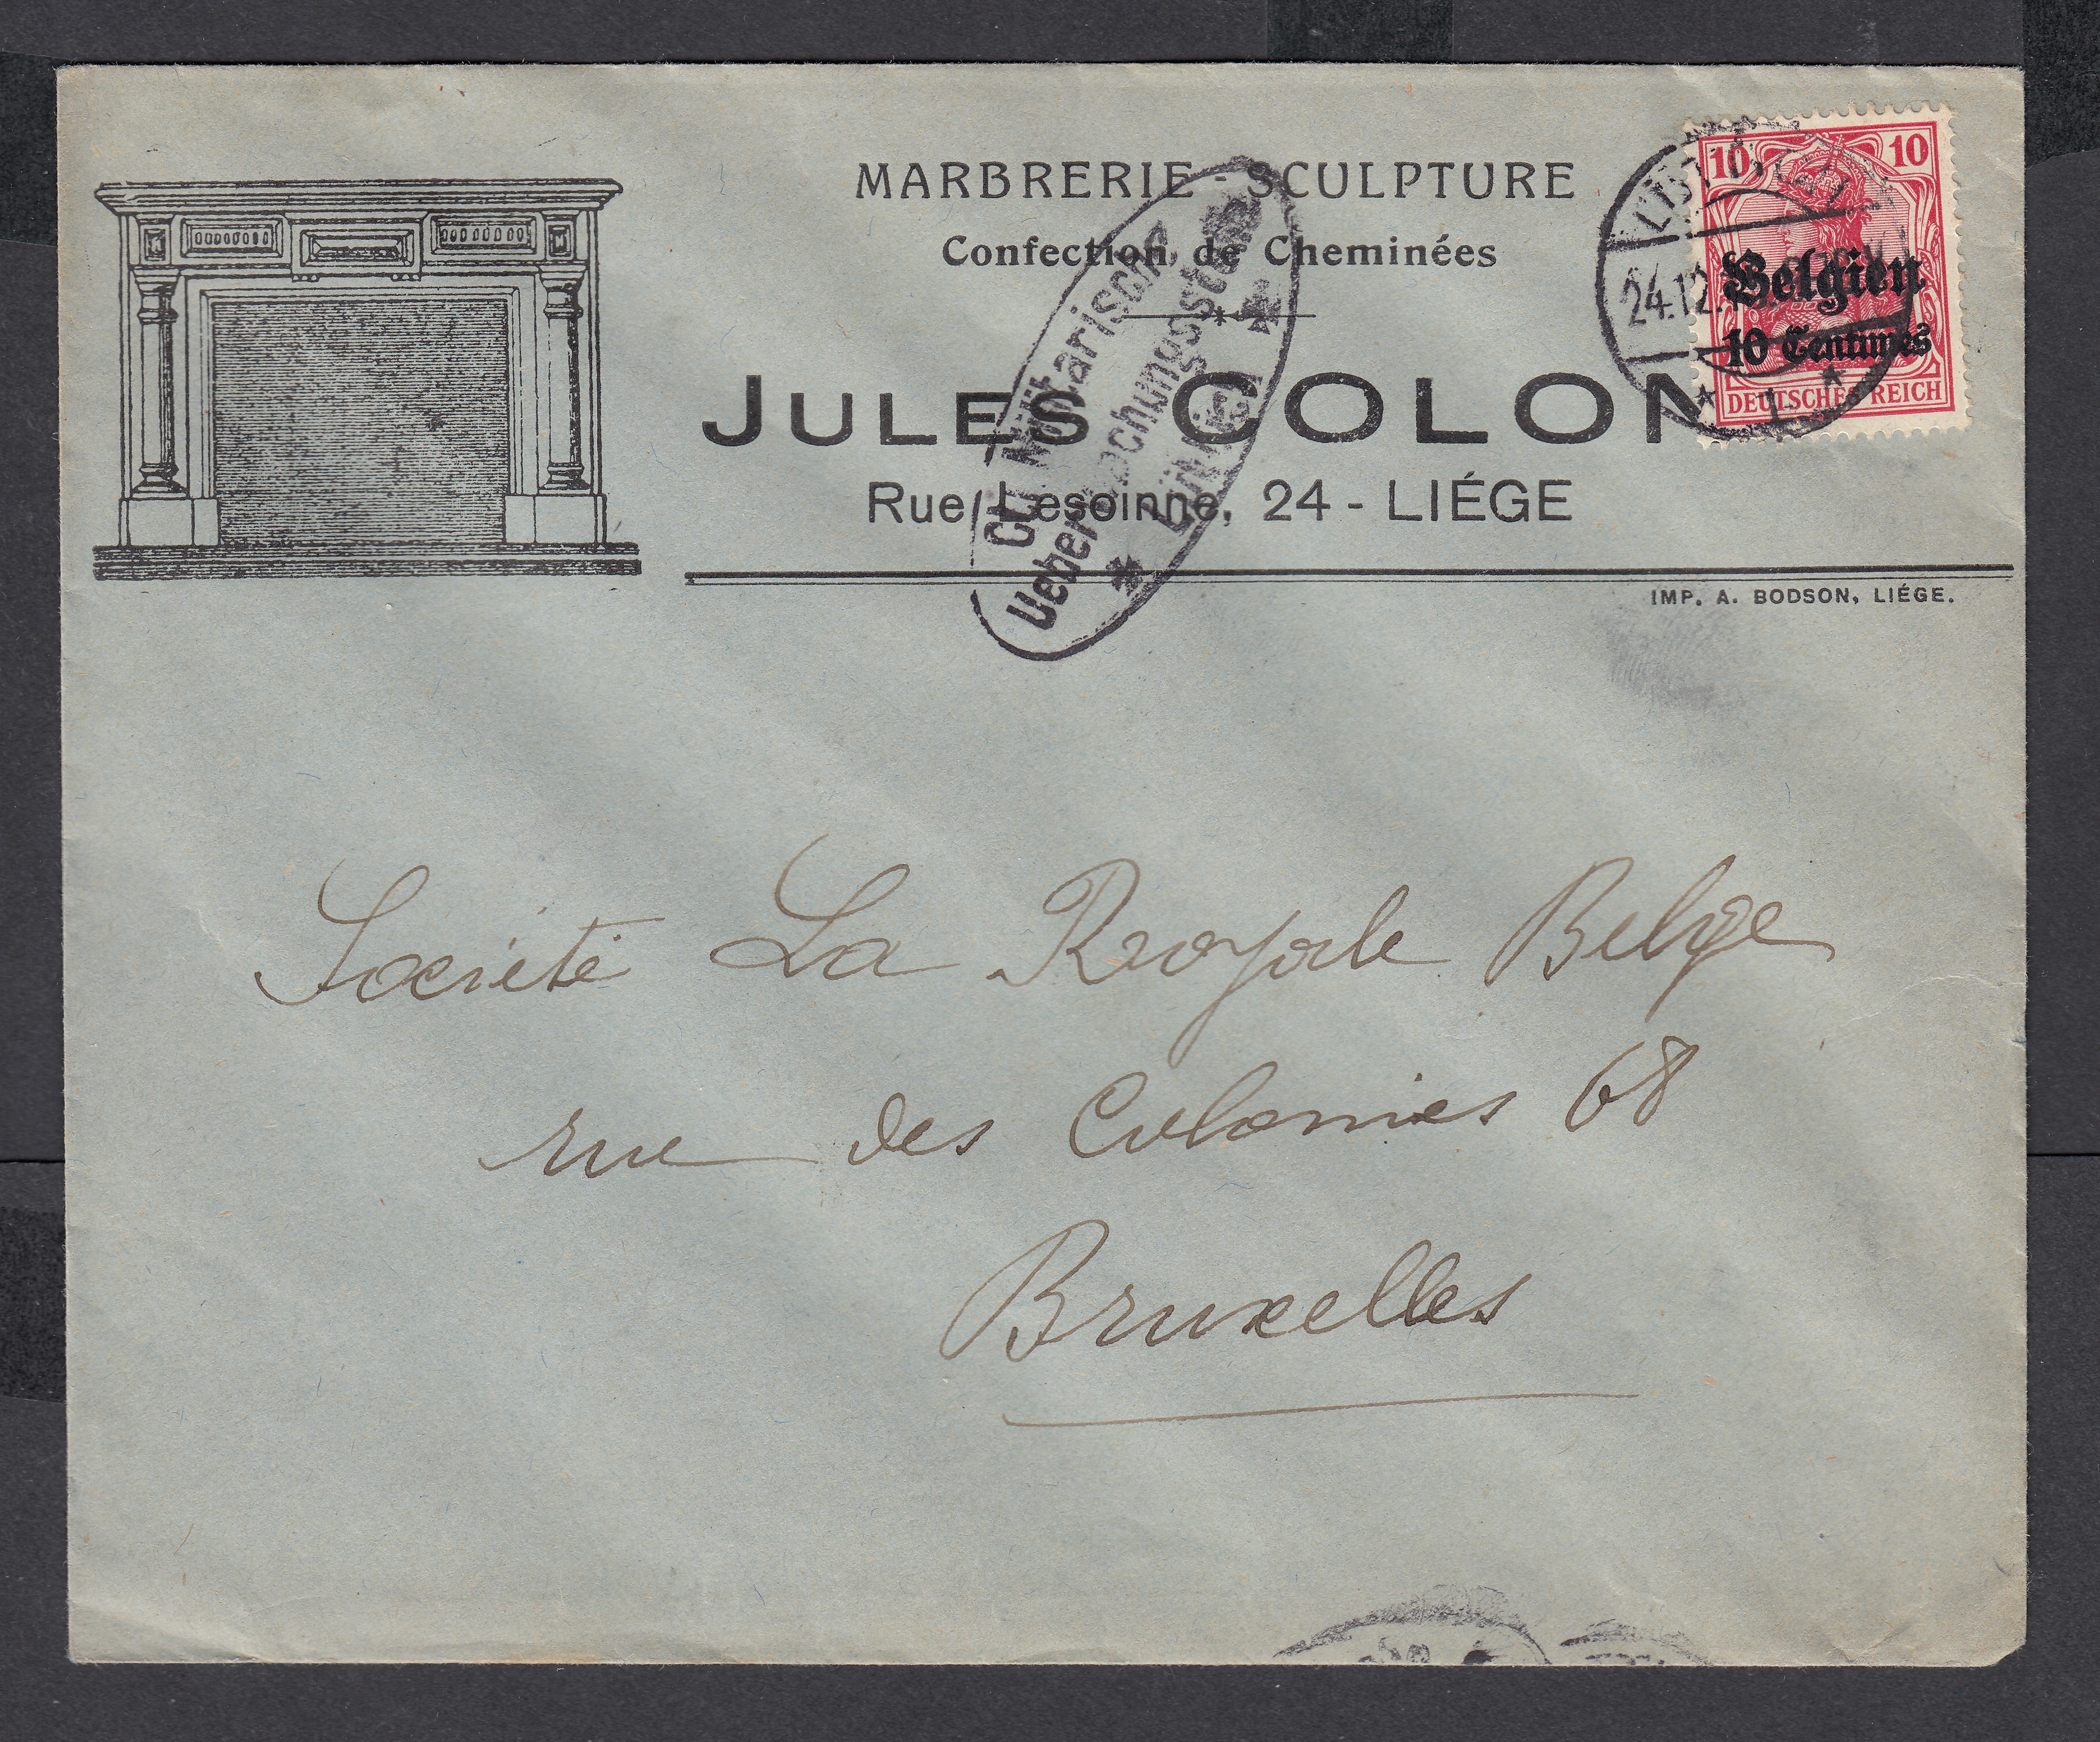 MARBRERIE - SCULPTURE
Confection de Cheminées
JULES COLON
Rue Lesoinne, 24 - LIÉGE
IMP. A. BODSON, LIÉGE.
10 10
Belgien
10 Centimes
DEUTSCHES REICH
24.12.
1
Militärische
Ueberwachungsstelle
Lüttich
Société La Royale Belge
rue des Colonies 68
Bruxelles